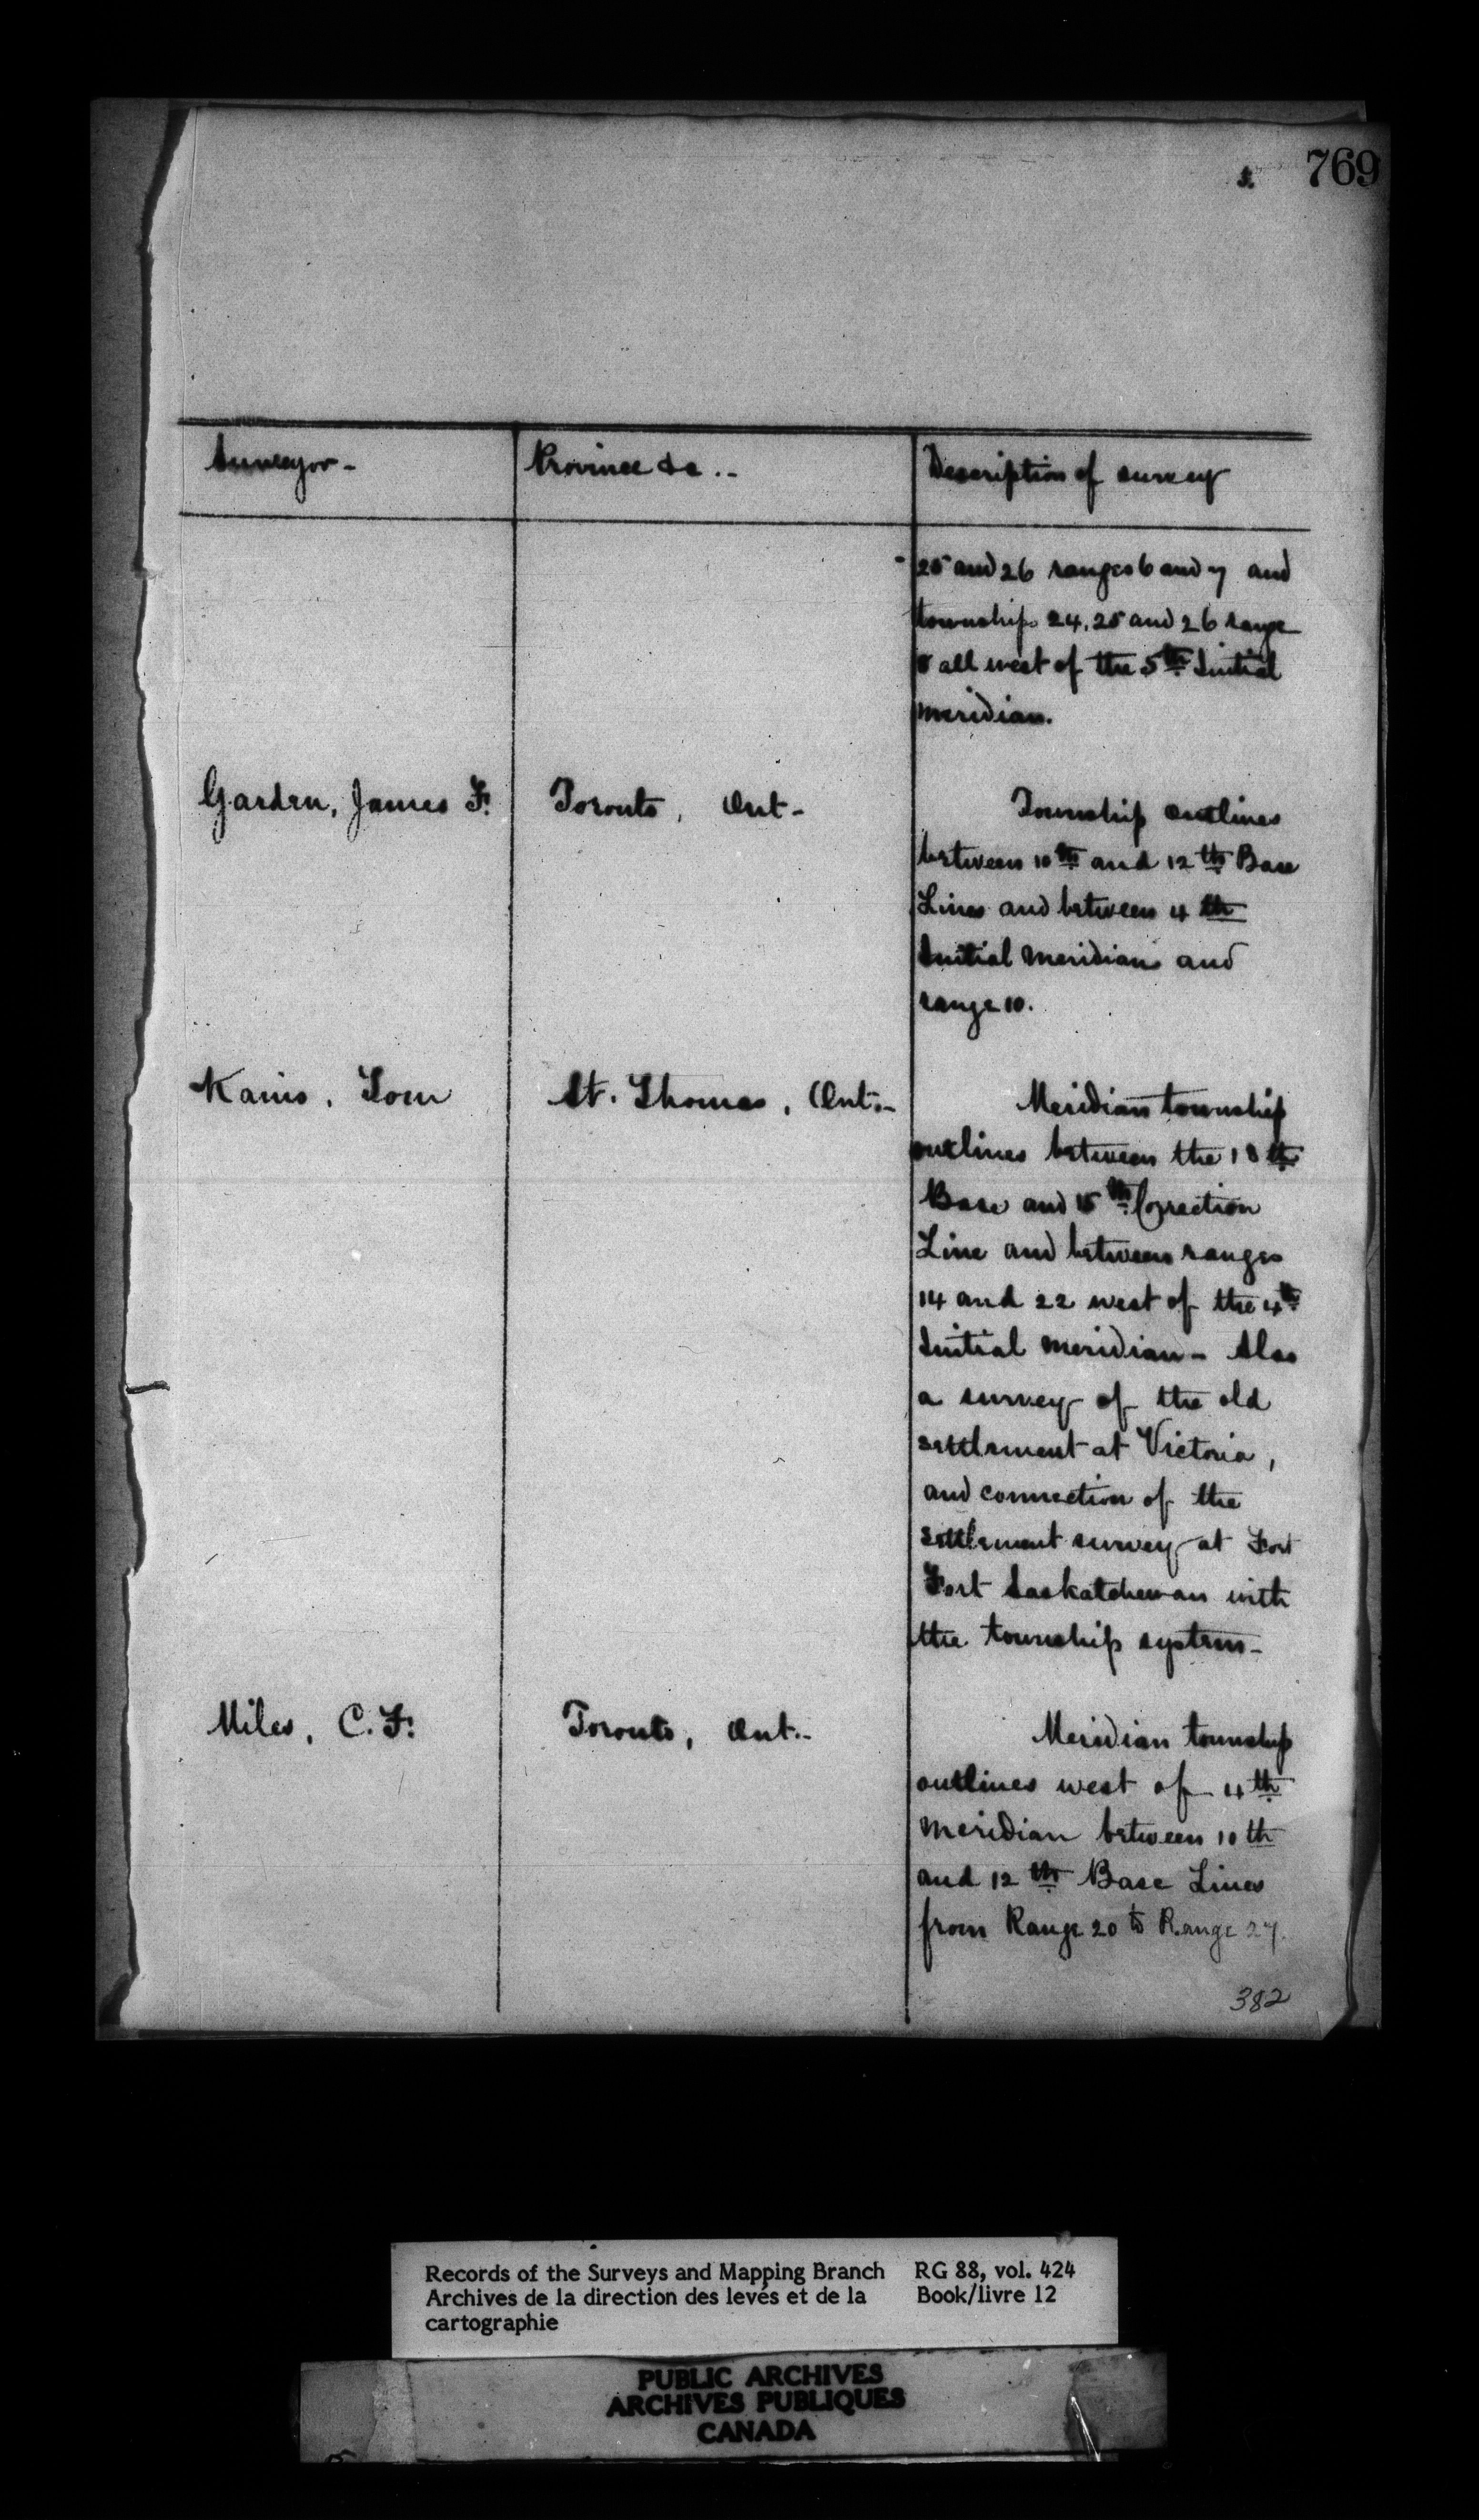 769
Surveyor - Province &c .. Description of survey
25 and 26 ranges 6 and 7 and
townships 24, 25 and 26 range
8 all west of the 5th Initial
Meridian.
Garden, James F. Toronto, Ont - Township outlines
between 10th and 12th Base
Lines and between 4th
Initial Meridian and
range 10.
Kains, Tom St. Thomas, Ont.- Meridian township
outlines between the 18th
Base and 15th Correction
Line and between ranges
14 and 22 west of the 4th
Initial Meridian - Also
a survey of the old
settlement at Victoria,
and connection of the
settlement survey at Fort
Fort Saskatchewan with
the township system -
Miles, C. F. Toronto, Ont.- Meridian township
outlines west of 4th
Meridian between 10th
and 12th Base Lines
from Range 20 to Range 27.
382
Records of the Surveys and Mapping Branch RG 88, vol. 424
Archives de la direction des levés et de la Book/livre 12
cartographie
PUBLIC ARCHIVES
ARCHIVES PUBLIQUES
CANADA